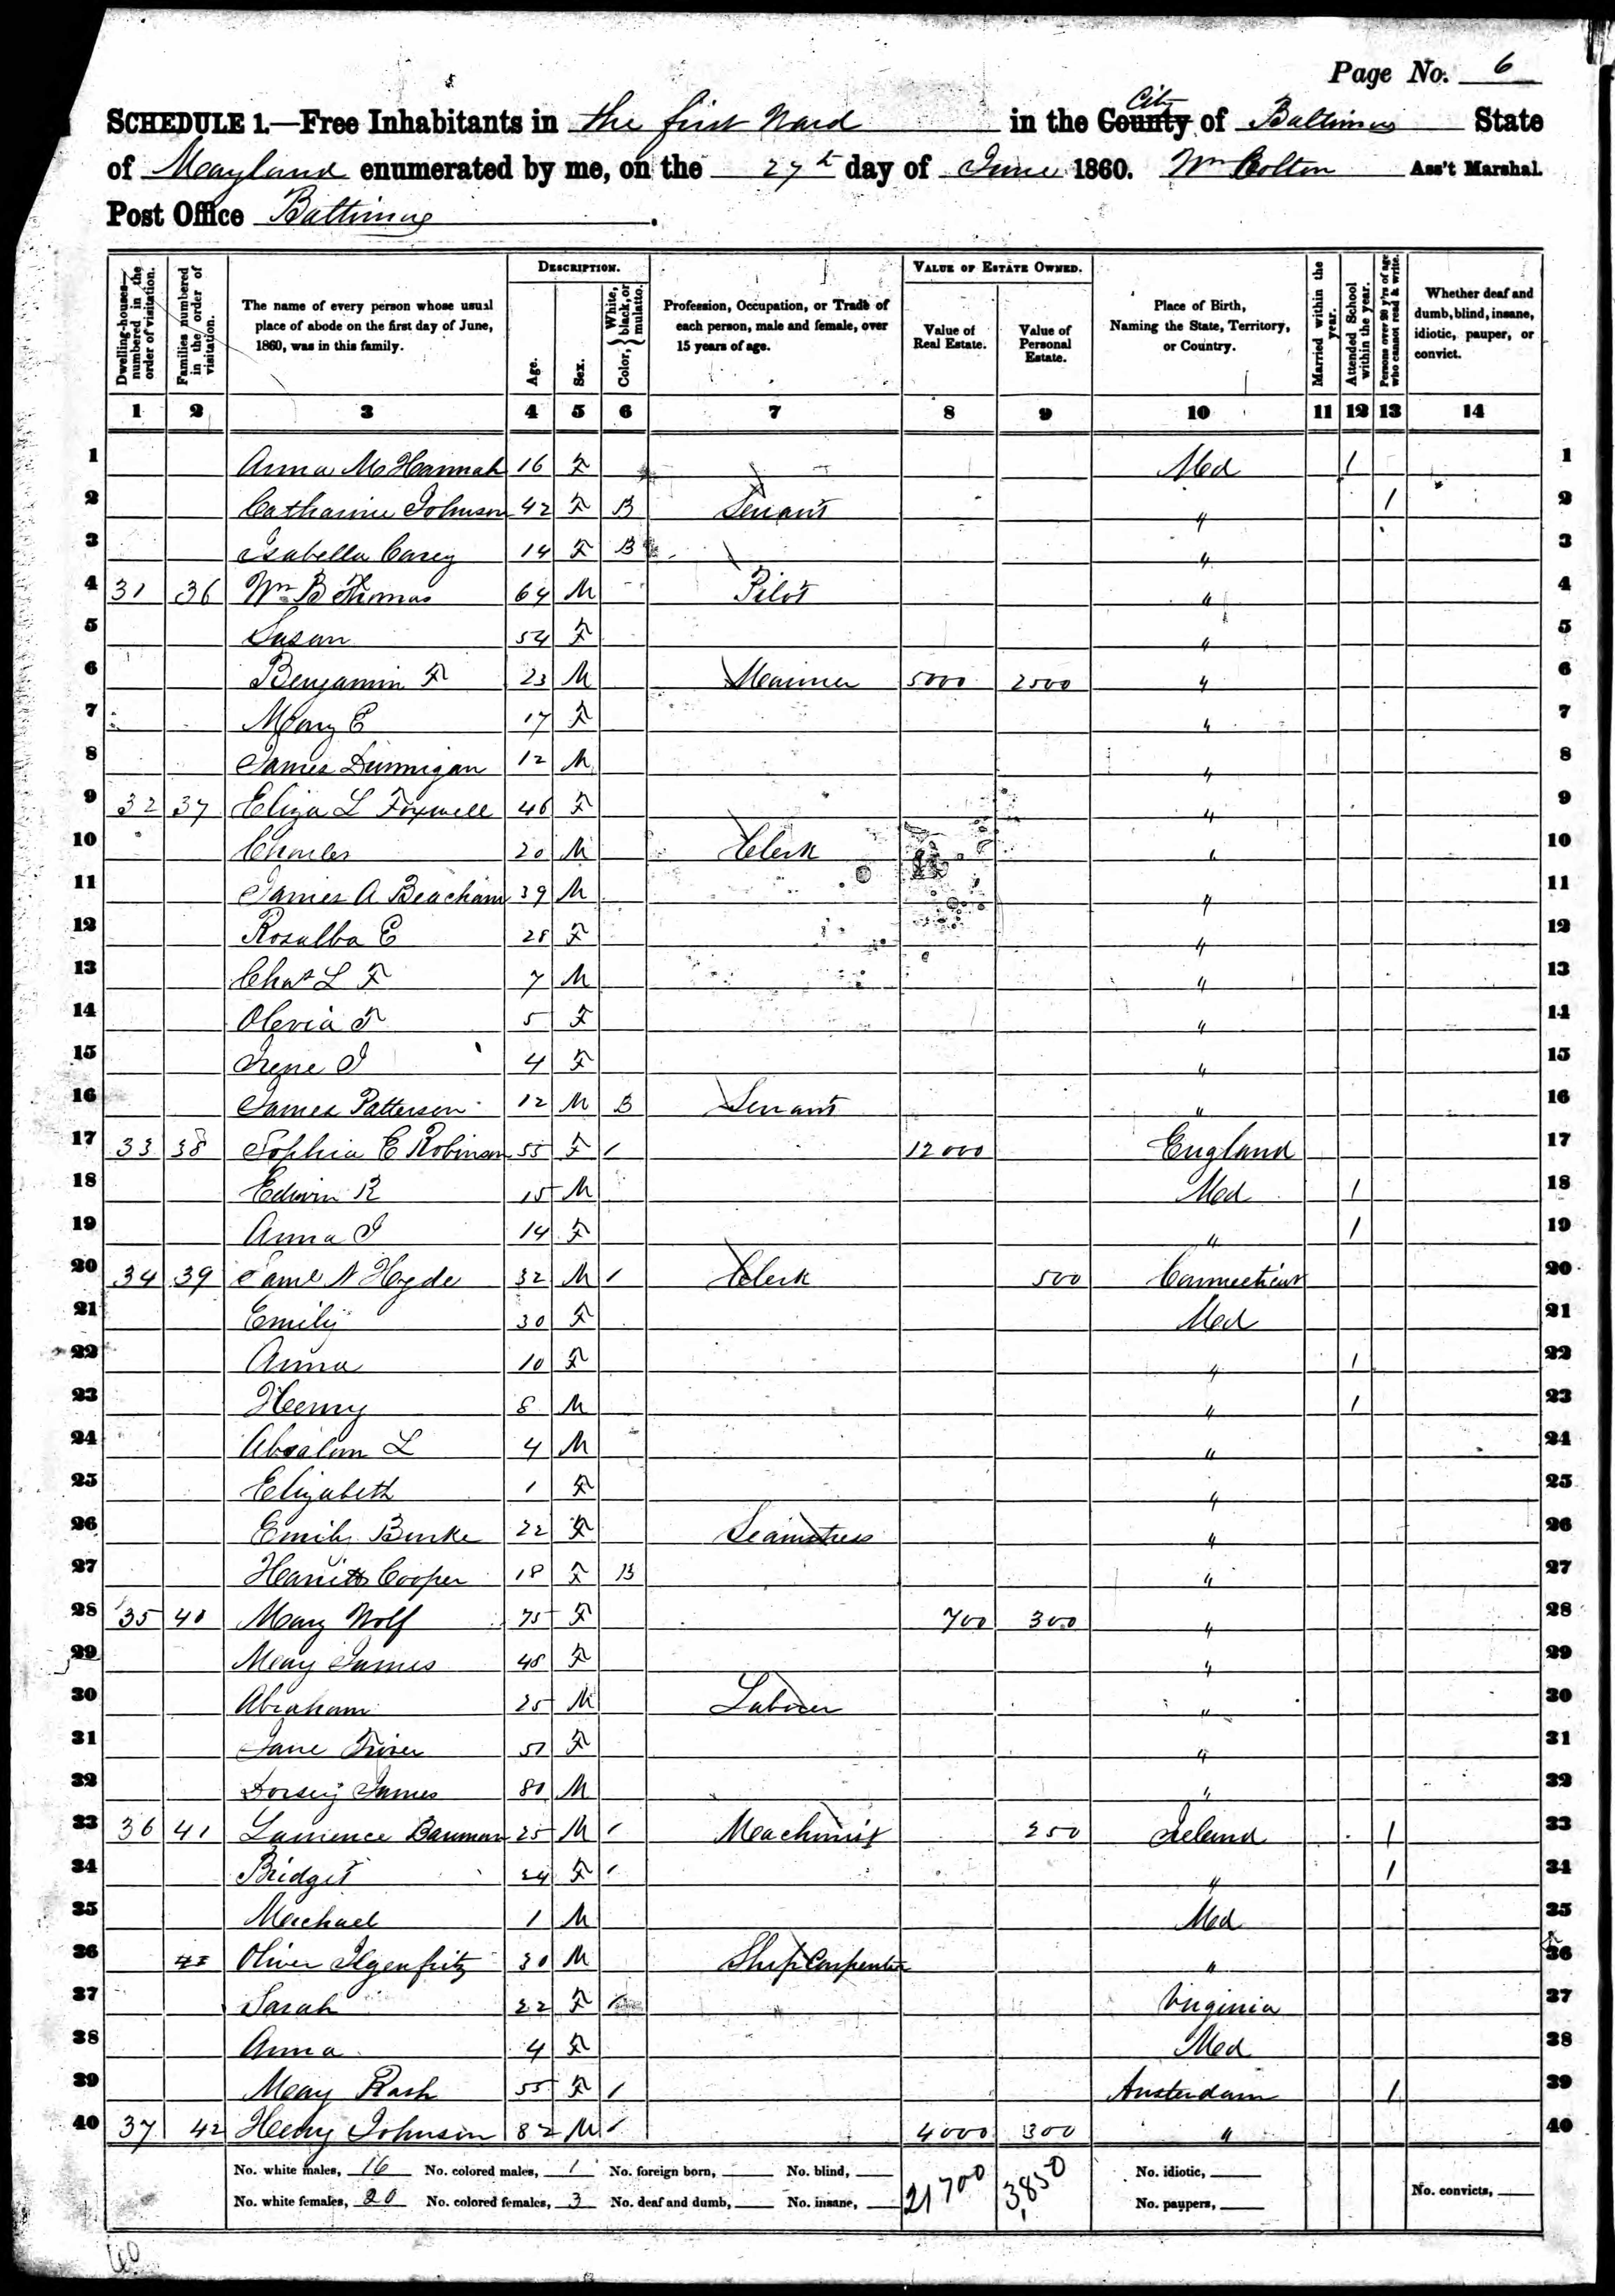 Page No. 6
SCHEDULE 1.—Free Inhabitants in the first Ward in the County City of Baltimore State
of Maryland enumerated by me, on the 27th day of June 1860. Wm Bolton Ass't Marshal.
Post Office Baltimore.
Dwelling-houses— numbered in the order of visitation.
Families numbered in the order of visitation.
The name of every person whose usual place of abode on the first day of June, 1860, was in this family.
DESCRIPTION.
Age.
Sex.
Color, { White, black, or mulatto.
Profession, Occupation, or Trade of each person, male and female, over 15 years of age.
VALUE OF ESTATE OWNED.
Value of Real Estate.
Value of Personal Estate.
Place of Birth, Naming the State, Territory, or Country.
Married within the year.
Attended School within the year.
Persons over 20 y'rs of age who cannot read & write.
Whether deaf and dumb, blind, insane, idiotic, pauper, or convict.
1 2 3 4 5 6 7 8 9 10 11 12 13 14
1 Anna McHannah 16 F Md 1 1
2 Catharine Johnson 42 F B Servant " 1 2
3 Isabella Carey 14 F B " 3
4 31 36 Wm B Thomas 64 M Pilot " 4
5 Susan 54 F " 5
6 Benjamin F 23 M Mariner 5000 2500 " 6
7 Mary E 17 F " 7
8 James Dunnigan 12 M " 8
9 32 37 Eliza L Foxwell 46 F " 9
10 Charles 20 M Clerk " 10
11 James A Beacham 39 M " 11
12 Rosalba E 28 F " 12
13 Chas L F 7 M " 13
14 Olevia F 5 F " 14
15 Irene I 4 F " 15
16 James Patterson 12 M B Servant " 16
17 33 38 Sophia E Robinson 55 F / 12000 England 17
18 Edwin R 15 M Md 1 18
19 Anna I 14 F " 1 19
20 34 39 Saml N Hyde 32 M / Clerk 500 Connecticut 20
21 Emily 30 F Md 21
22 Anna 10 F " 1 22
23 Henry 8 M " 1 23
24 Absalom L 4 M " 24
25 Elizabeth 1 F " 25
26 Emily Burke 22 F Seamstress " 26
27 Harriett Cooper 18 F B " 27
28 35 40 Mary Wolf 75 F 700 300 " 28
29 Mary James 48 F " 29
30 Abraham 25 M Laborer " 30
31 Jane F " 31
32 Dorsey James 80 M " 32
33 36 41 Lawrence Bauman 25 M / Machinist 250 Ireland 1 33
34 Bridget 24 F / " 1 34
35 Michael 1 M Md 35
36 Oliver Ilgenfritz 30 M Ship Carpenter " 36
37 Sarah 22 F / Virginia 37
38 Anna 4 F Md 38
39 Mary Rash 55 F / Amsterdam 1 39
40 37 42 Henry Johnson 82 M / 4000 300 " 40
No. white males, 16 No. colored males, 1 No. foreign born, No. blind, 21700 3,850 No. idiotic,
No. white females, 20 No. colored females, 3 No. deaf and dumb, No. insane, No. paupers, No. convicts,